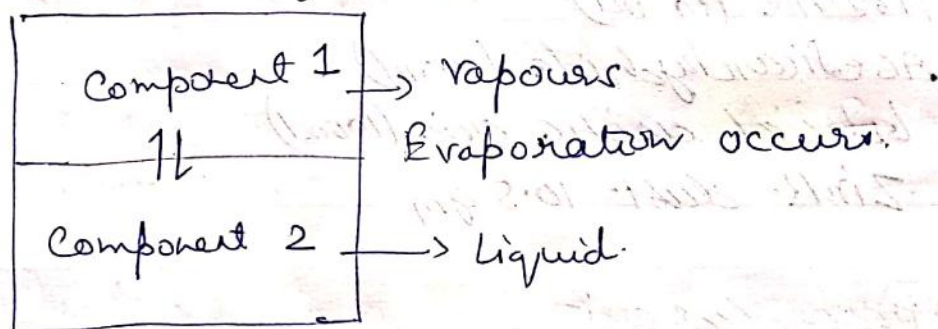 Component 1 → vapours
Evaporation occurs.
⇅
Component 2 → Liquid.